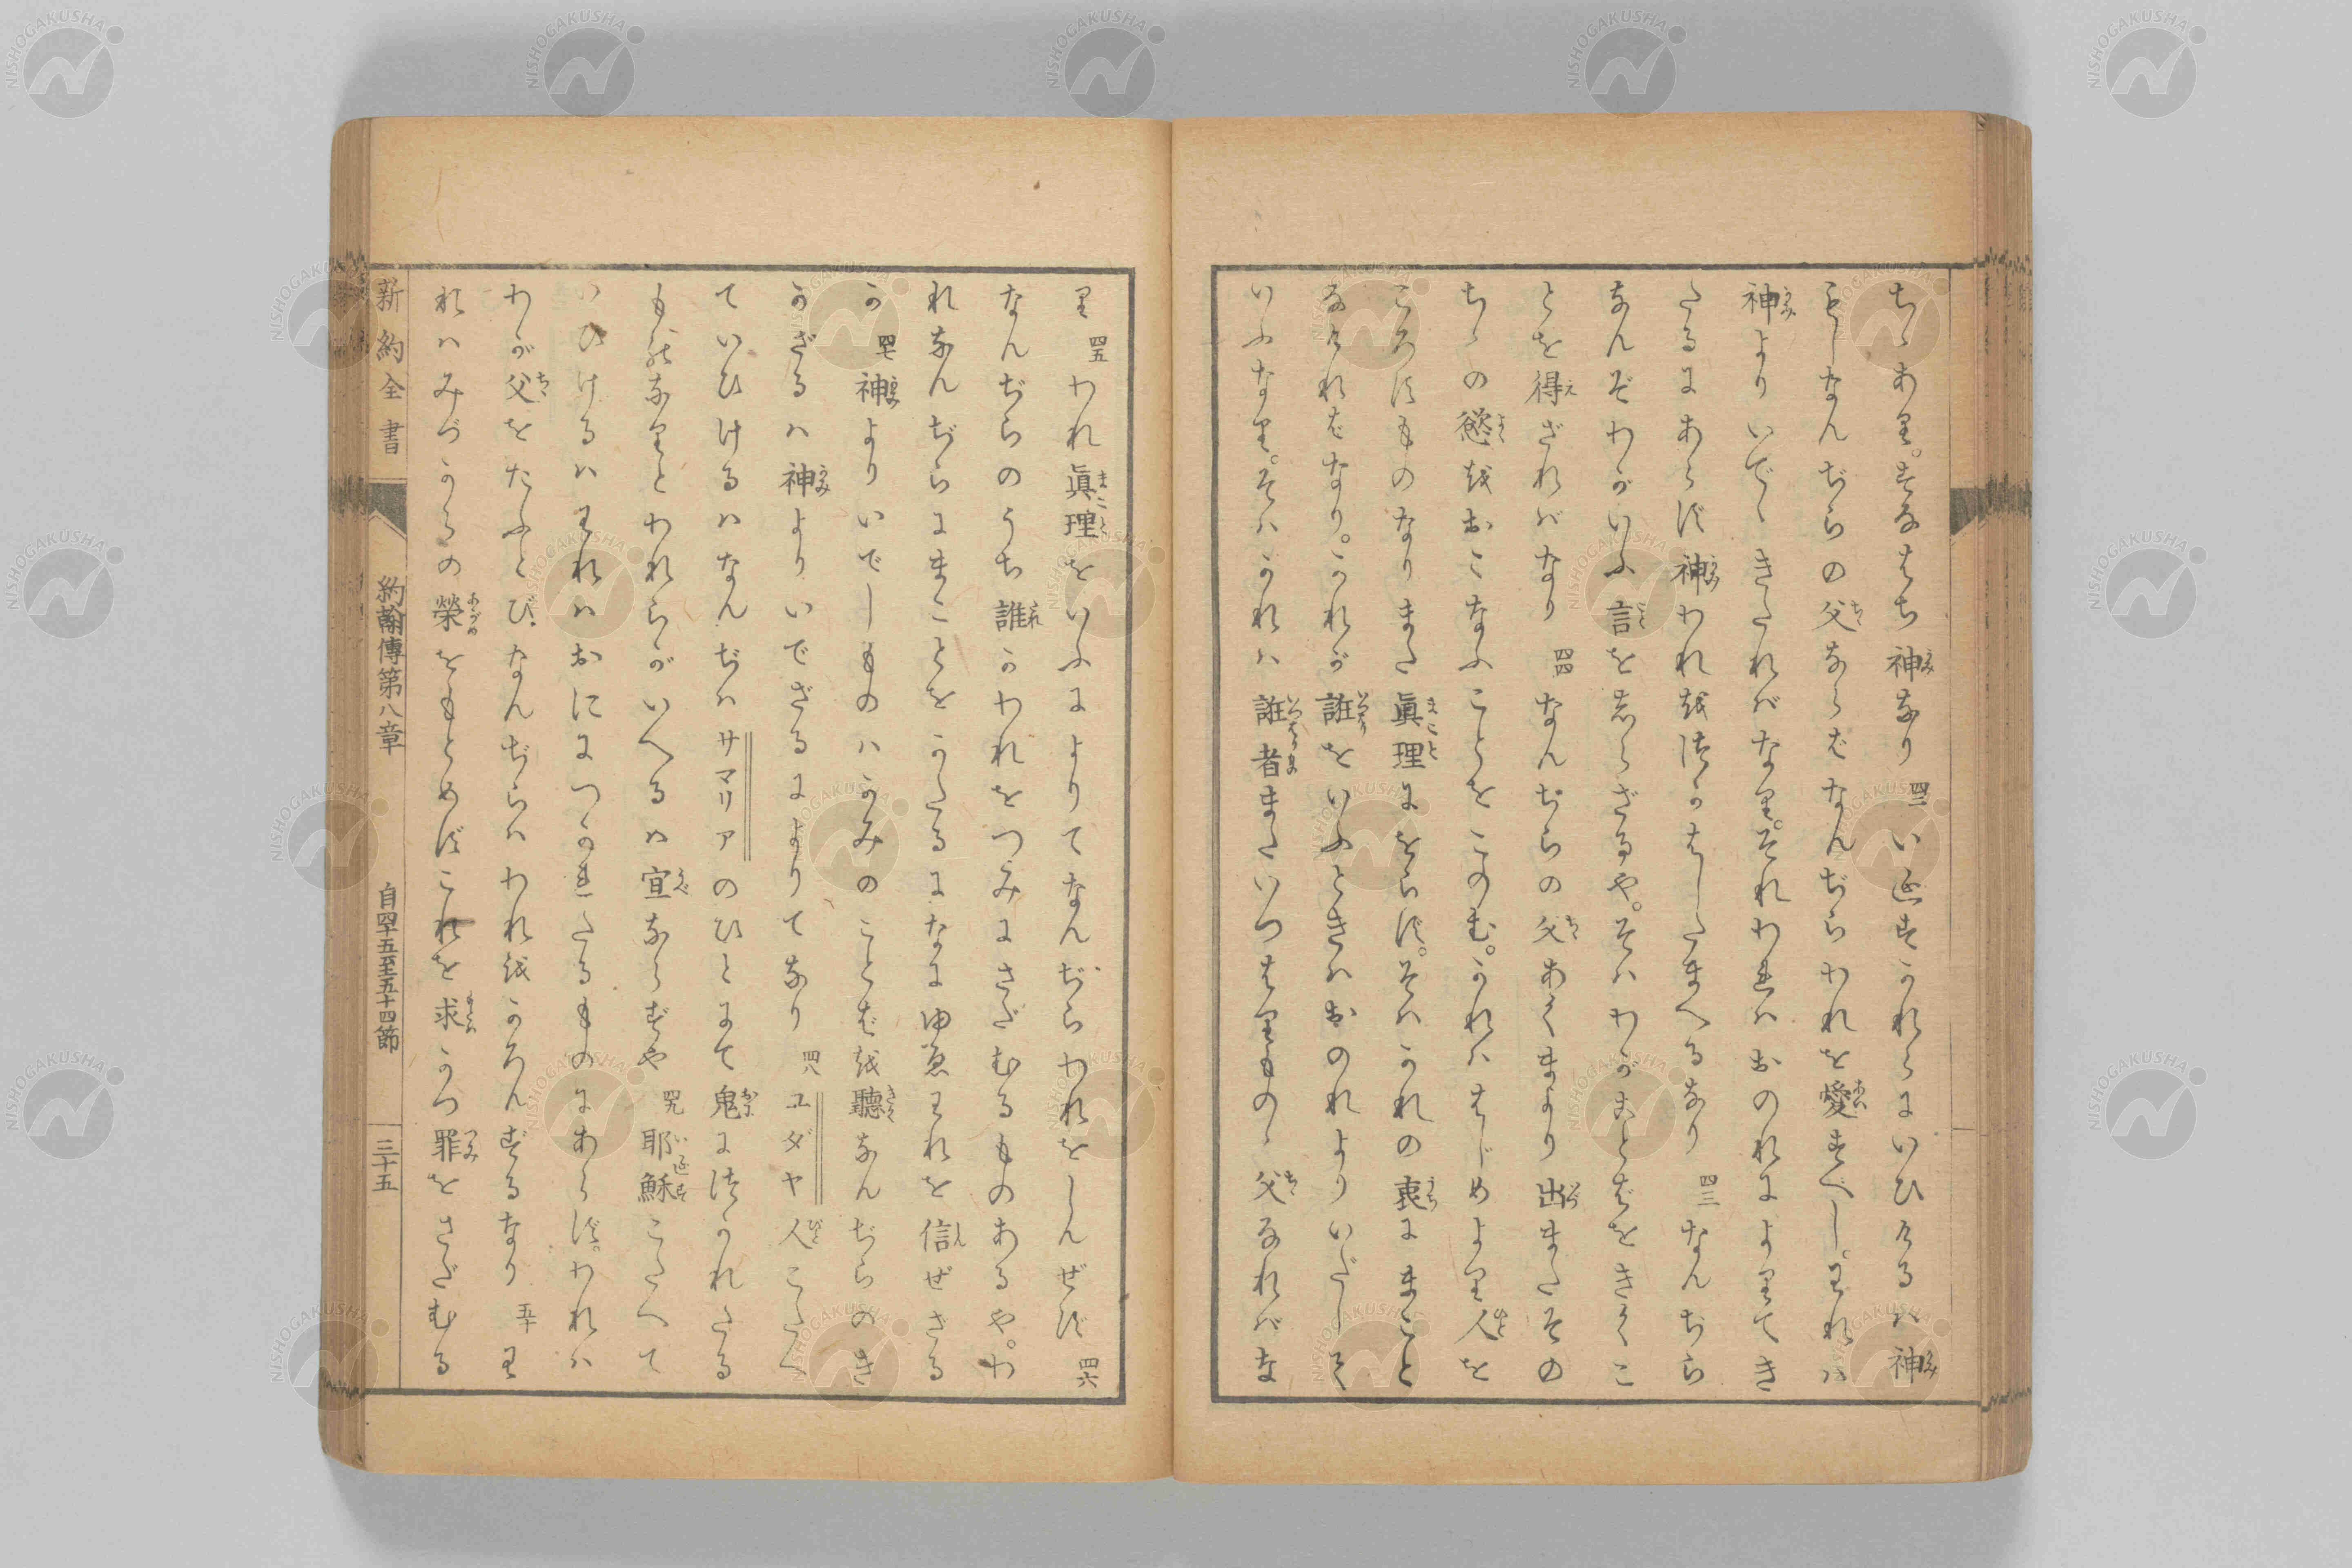 ちゝあり。すなはち神なり 四二 いゑすかれらにいひけるハ神
もしなんぢらの父ならばなんぢらわれを愛すべし。われハ
神よりいでゝきたれバなり。それわれハおのれによりてき
たるにあらず神われをつかはしたまへるなり 四三 なんぢら
なんぞわがいふ言をしらざるや。そハわがことばをきくこ
とを得ざれバなり 四四 なんぢらの父あくまより出またその
ちゝの慾をおこなふことをこのむ。かれハはじめより人を
ころすものなりまた眞理にをらず。そハかれの衷にまこと
なければなり。かれが誑をいふときハおのれよりいだしそ
いふなり。そハかれハ誑者またいつはりものゝ父なれバな
り 四五 われ眞理をいふによりてなんぢらわれをしんぜず 四六
なんぢらのうち誰かわれをつみにさだむるものあるや。わ
れなんぢらにまことをかたるになにゆゑわれを信ぜざる
か 四七 神よりいでしものハかみのことばを聽なんぢらのき
かざるハ神よりいでざるによりてなり 四八 ユダヤ人こたへ
ていひけるハなんぢハサマリアのひとにて鬼につかれたる
ものなりとわれらがいへるハ宜ならずや 四九 耶穌こたへて
いひけるハわれハおににつかれたるものにあらず。われハ
わが父をたふとびなんぢらハわれをかろんずるなり 五十 わ
れハみづからの榮をもとめずこれを求かつ罪をさだむる
新約全書
約翰傳第八章
自四十五至五十四節
三十五
NISHOGAKUSHA